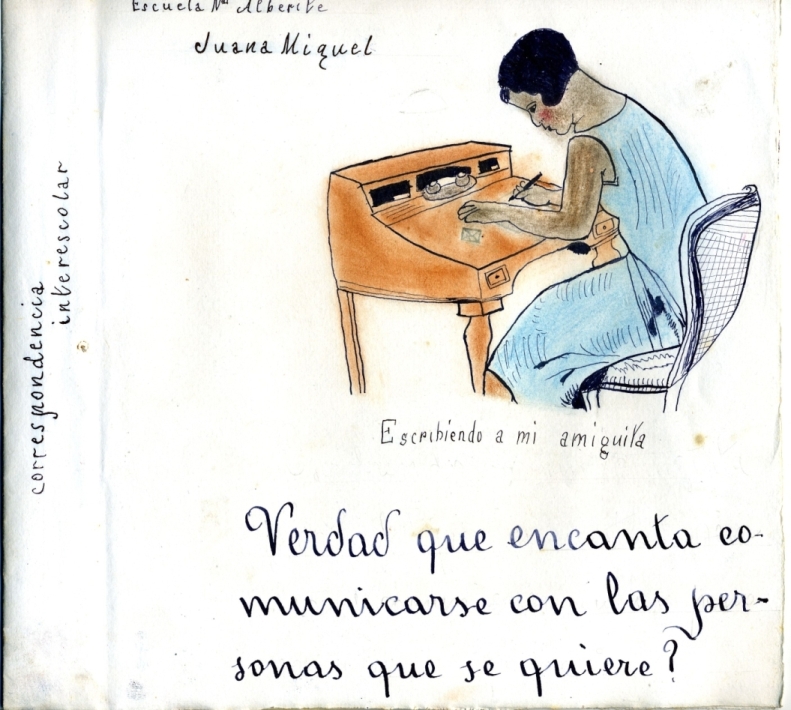 Escuela Nal Alberite
Juana Miquel
correspondencia
interescolar
Escribiendo a mi amiguita
Verdad que encanta co-
municarse con las per-
sonas que se quiere?